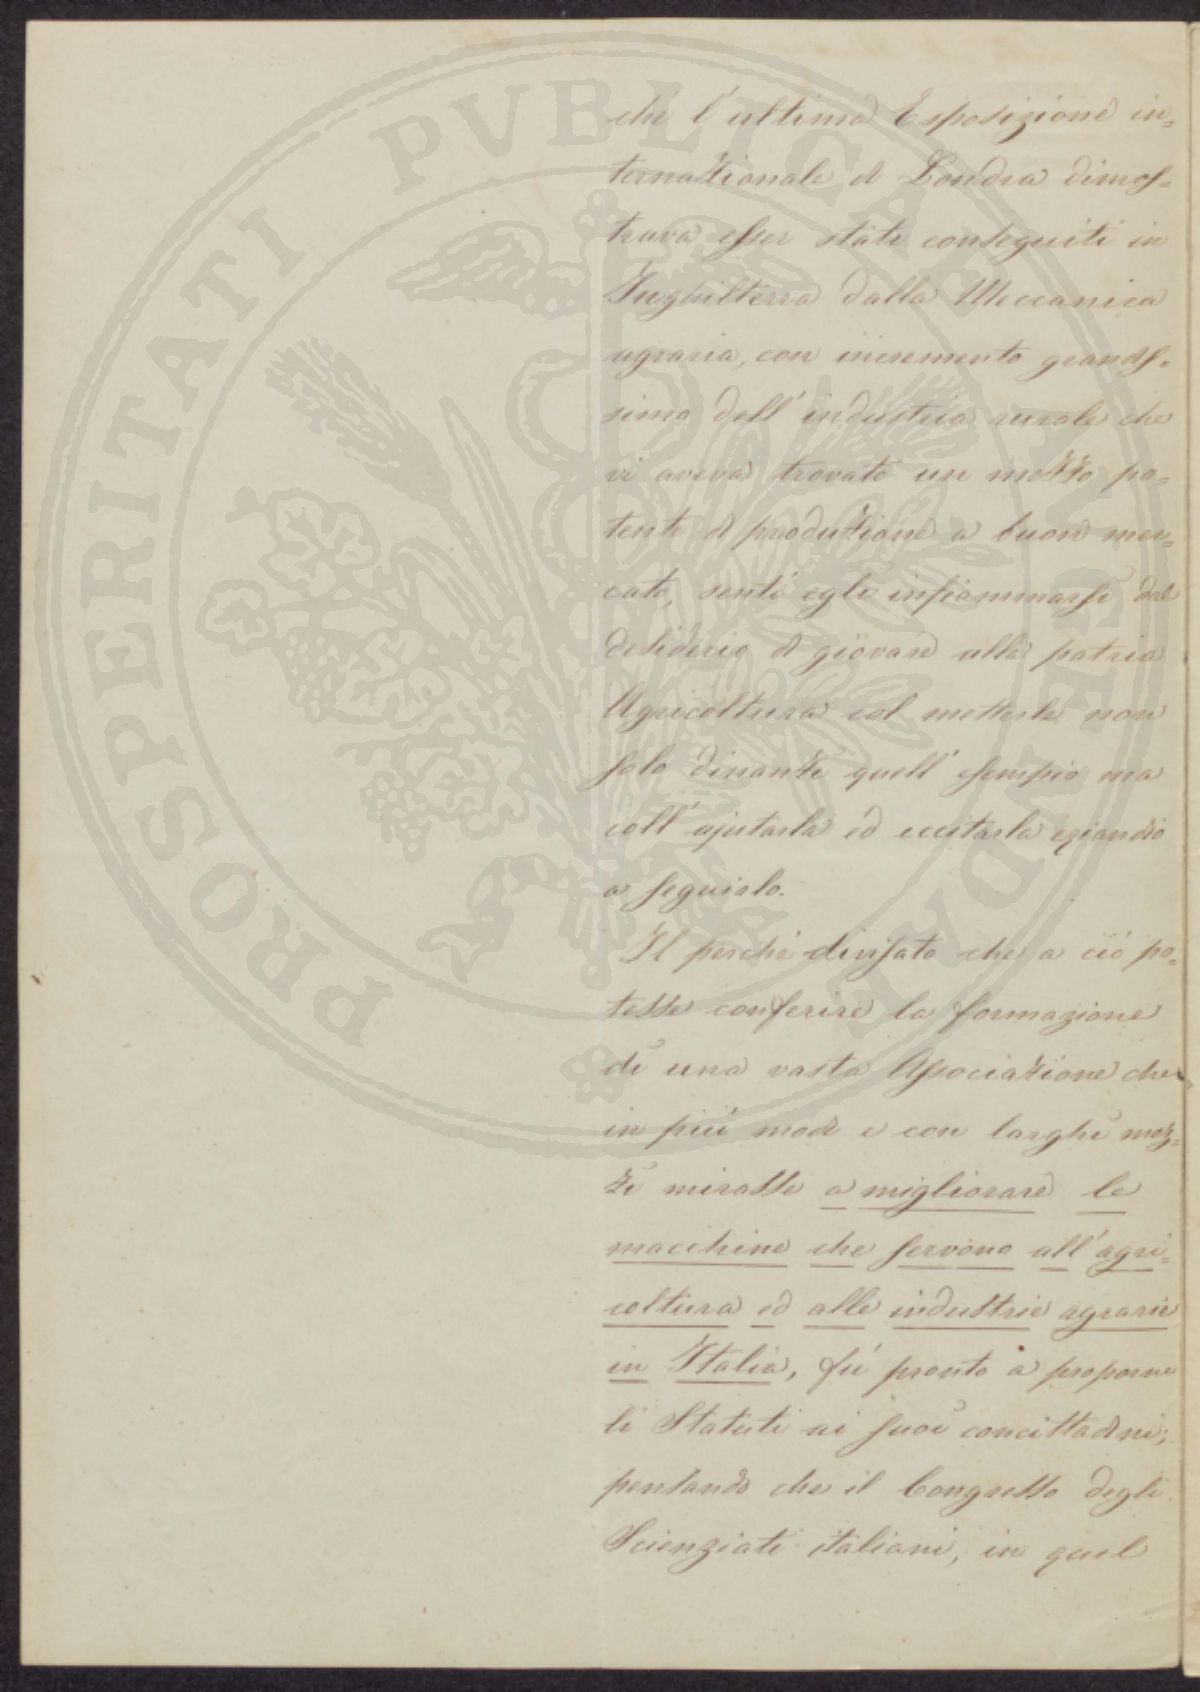 PROSPERITATI PVBLICAE AVGENDAE
che l'ultima Esposizione in=
ternazionale di Londra dimos=
trava esser stati conseguiti in
Inghilterra dalla Meccanica
agraria, con incremento grandis=
simo dell'industria rurale che
vi aveva trovato un mezzo po=
tente di produzione a buon mer=
cato, sentì egli infiammarsi dal
desiderio di giovare alla patria
Agricoltura col metterle non
solo dinanzi quell'esempio ma
coll'ajutarla ed eccitarla eziandio
a seguirlo.
Il perchè divisato che a ciò po=
tesse conferire la formazione
di una vasta Associazione che
in più modi e con larghi mez=
zi mirasse a migliorare le
macchine che servono all'agri=
coltura ed alle industrie agrarie
in Italia, fù pronto a proporne
li Statuti ai suoi concittadini;
pensando che il Congresso degli
Scienziati italiani, in quel